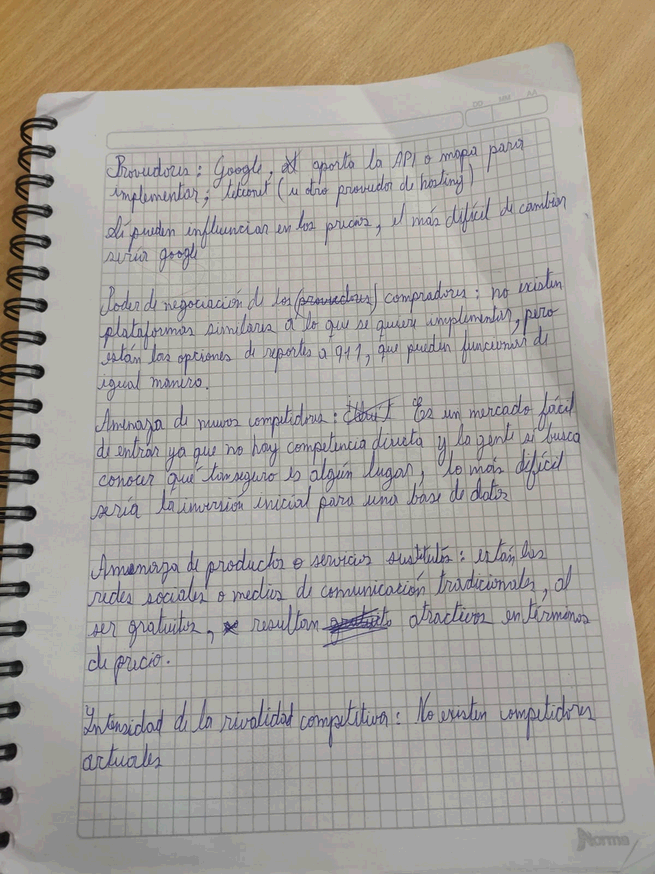 Proveedores: Google, aporta la API o mapa para
implementar; (u otro proveedor de hosting)
Si pueden influenciar en los precios, el más difícil de cambiar
sería google
Poder de negociación de los (proveedores) compradores: no existen
plataformas similares a lo que se quiere implementar, pero
están las opciones de reportes a 911, que pueden funcionar de
igual manera.
Amenaza de nuevos competidores: Es un mercado fácil
de entrar ya que no hay competencia directa y la gente si busca
conocer qué tan seguro es algún lugar, lo más difícil
sería la inversión inicial para una base de datos
Amenaza de productos o servicios sustitutos: están las
redes sociales o medios de comunicación tradicionales, al
ser gratuitos, resultan atractivos en términos
de precio.
Intensidad de la rivalidad competitiva: No existen competidores
actuales
Norma